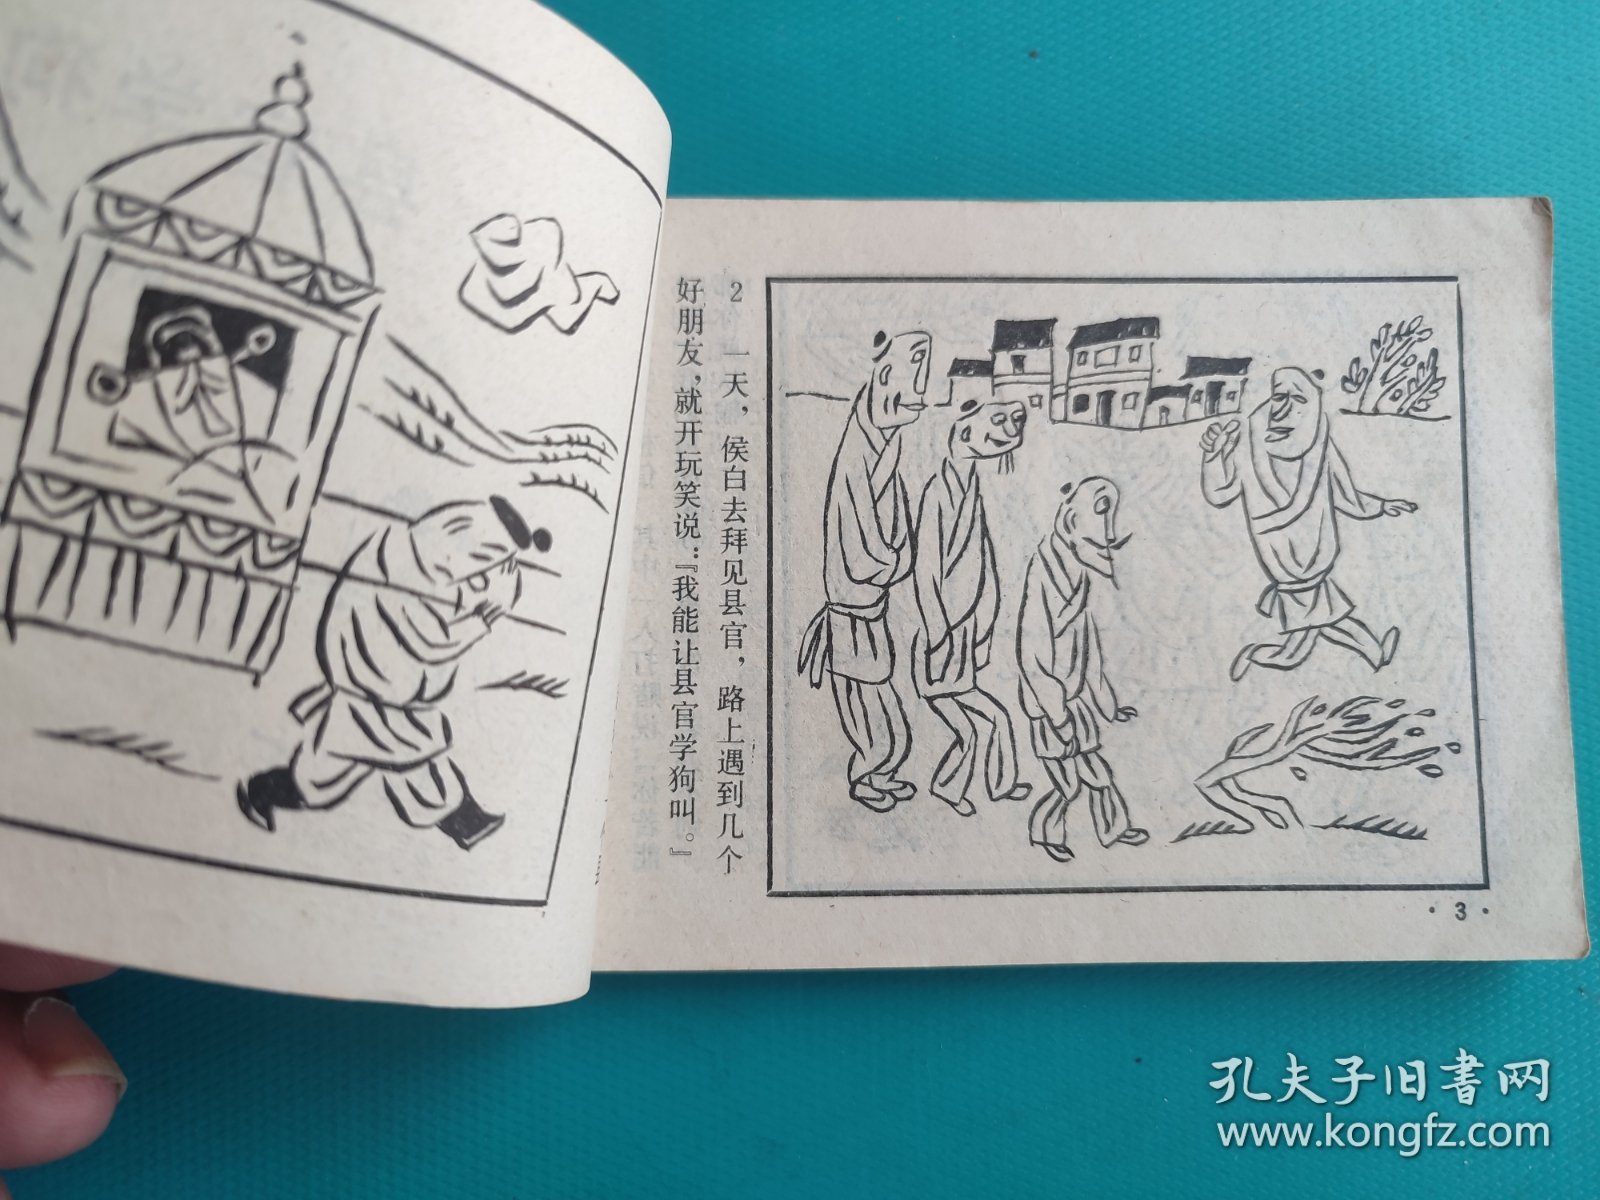 2 一天，侯白去拜见县官，路上遇到几个
好朋友，就开玩笑说：『我能让县官学狗叫。』
·3·
孔夫子旧书网
www.kongfz.com